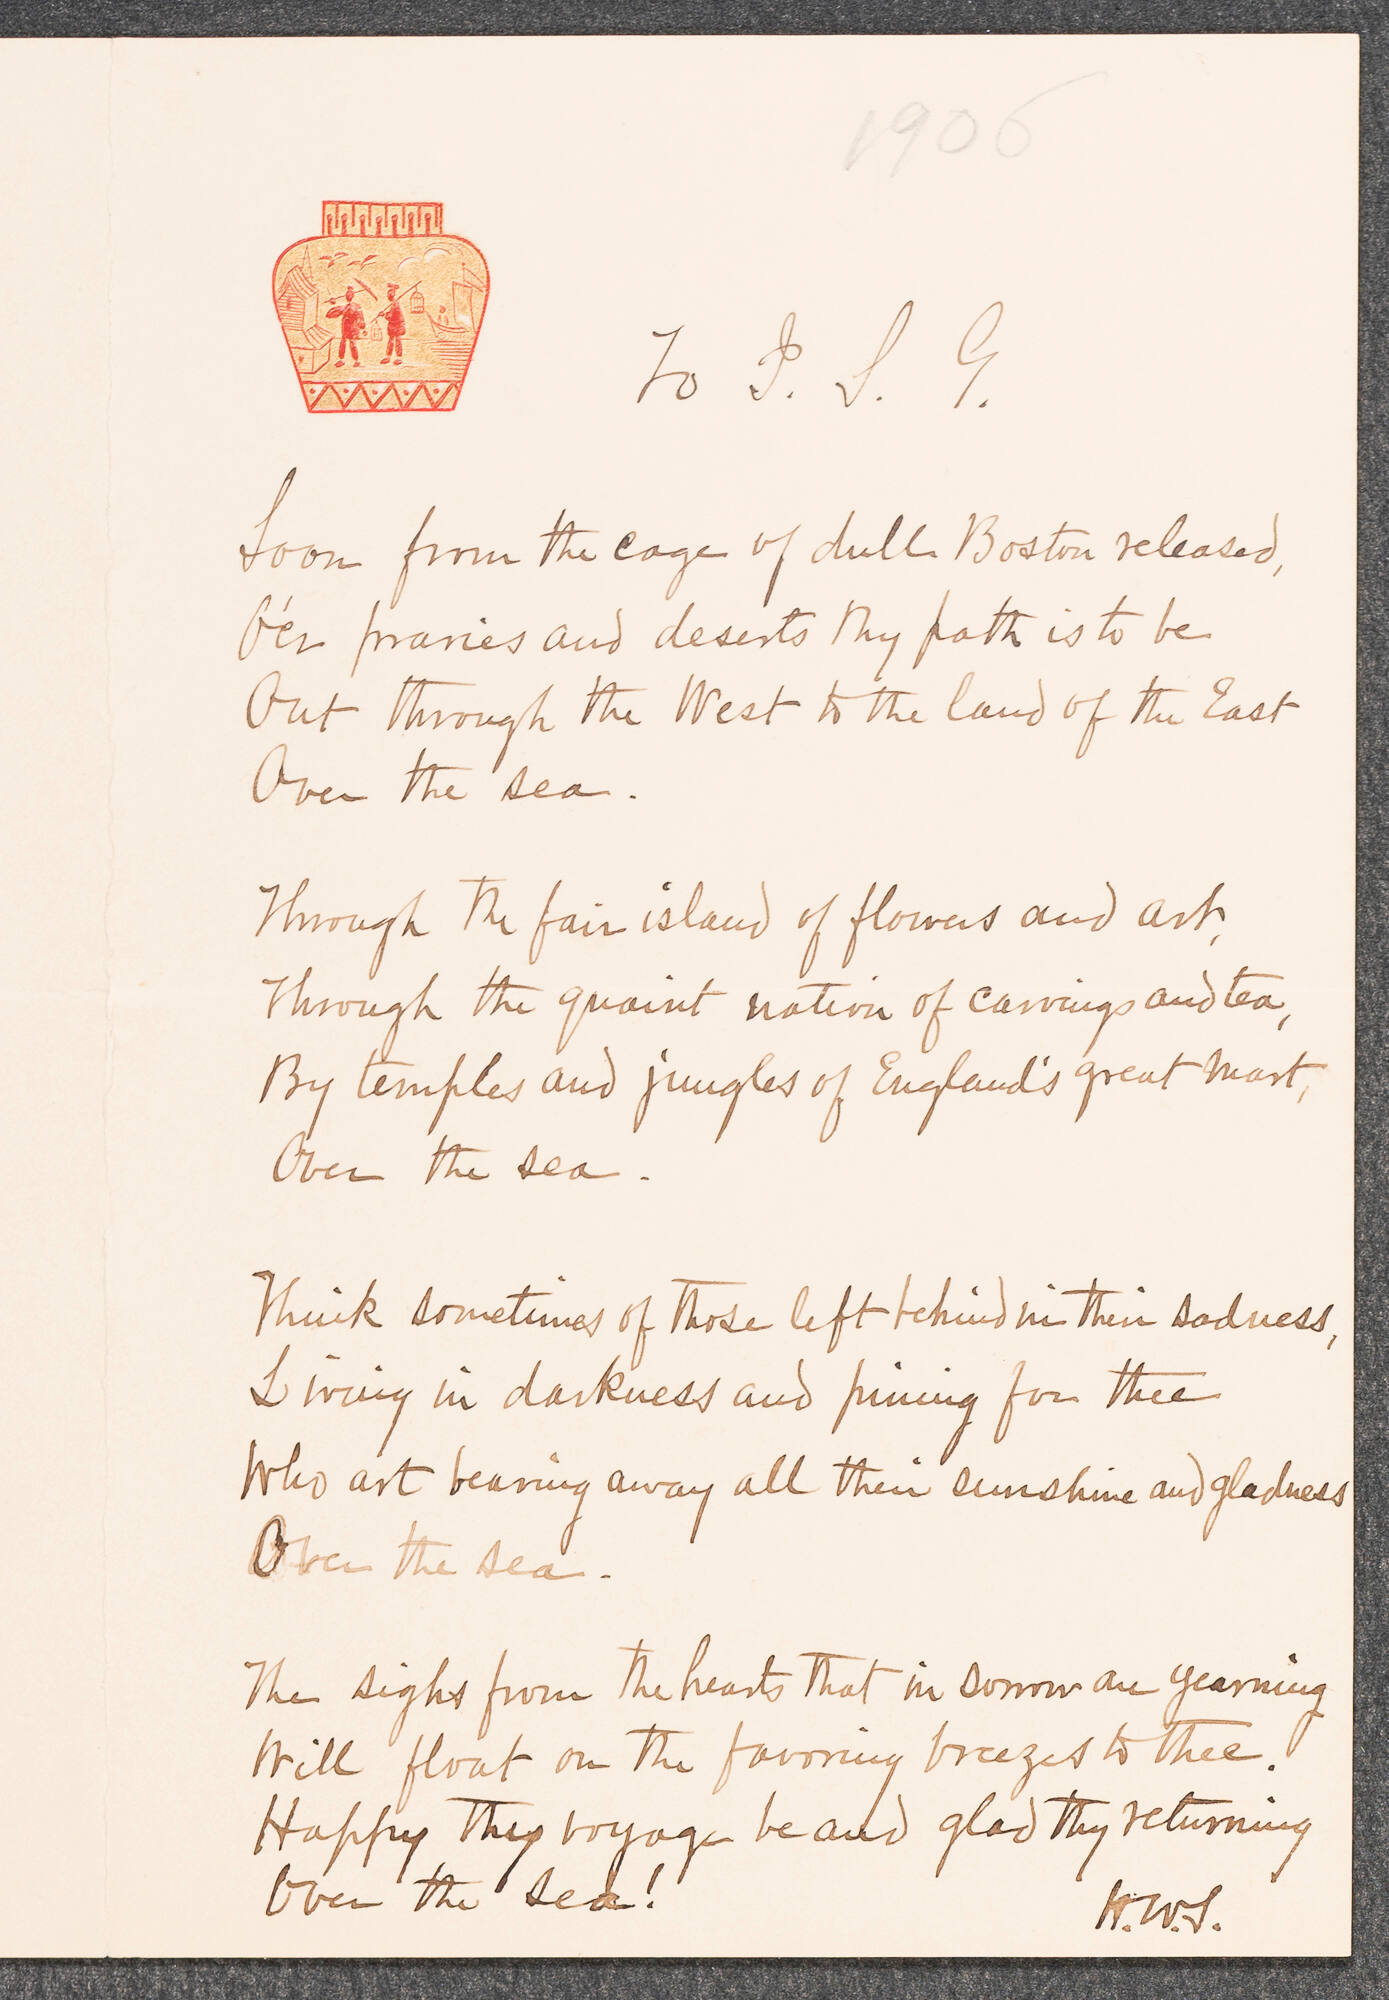 1906
To I. S. G.
Soon from the cage of dull Boston released,
O'er praries and deserts thy path is to be
Out through the West to the land of the East
Over the sea.
Through the fair island of flowers and art,
Through the quaint nation of carvings and tea,
By temples and jungles of England's great mart,
Over the sea.
Think sometimes of those left behind in their sadness,
Living in darkness and pining for thee
Who art bearing away all their sunshine and gladness
Over the sea.
The sighs from the hearts that in sorrow are yearning
Will float on the favoring breezes to thee.
Happy thy voyage be and glad thy returning
Over the sea!
H.W.S.